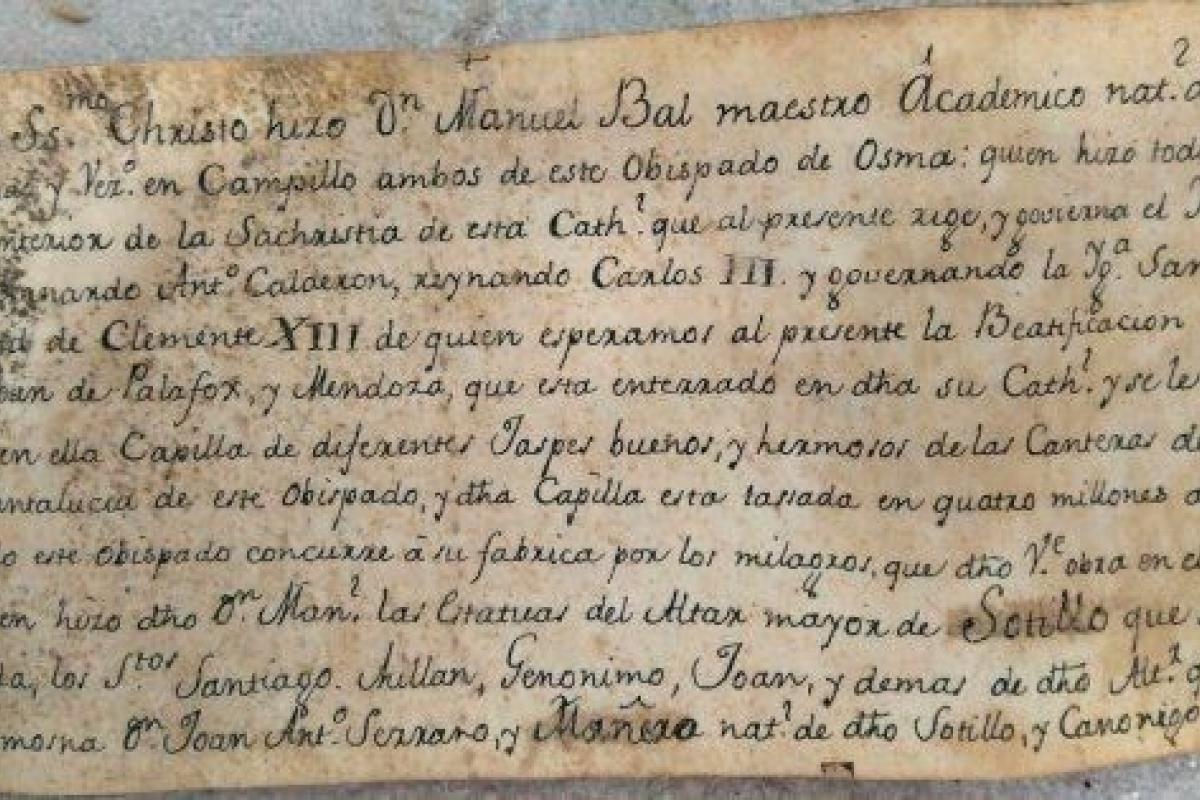 +
Ss.mo Christo hizo Dn. Manuel Bal maestro Académico nat.l d
y Vez.o en Campillo ambos de este Obispado de Osma: quien hizo tod
nterior de la Sachristia de esta Cath.l que al presente rige, y govierna el
rnardo Ant.o Calderon, reynando Carlos III. y governando la Yg.a San
d de Clemente XIII de quien esperamos al presente la Beatificacion
oan de Palafox, y Mendoza, que esta enterrado en dha su Cath.l y se le
en ella Capilla de diferentes Jaspes buenos, y hermosos de las Canteras d
antalucia de este Obispado, y dha Capilla esta tassada en quatro millones d
o este Obispado concurre â su fabrica por los milagros, que dho V.e obra en e
en hizo dho Dn. Man.l las Estatuas del Altar mayor de Sotillo que
da, los S.tos Santiago. Millan, Geronimo, Joan, y demas de dho Alt.r q
mosna Dn. Joan Ant.o Serrano, y Mañero nat.l de dho Sotillo, y Canonigo